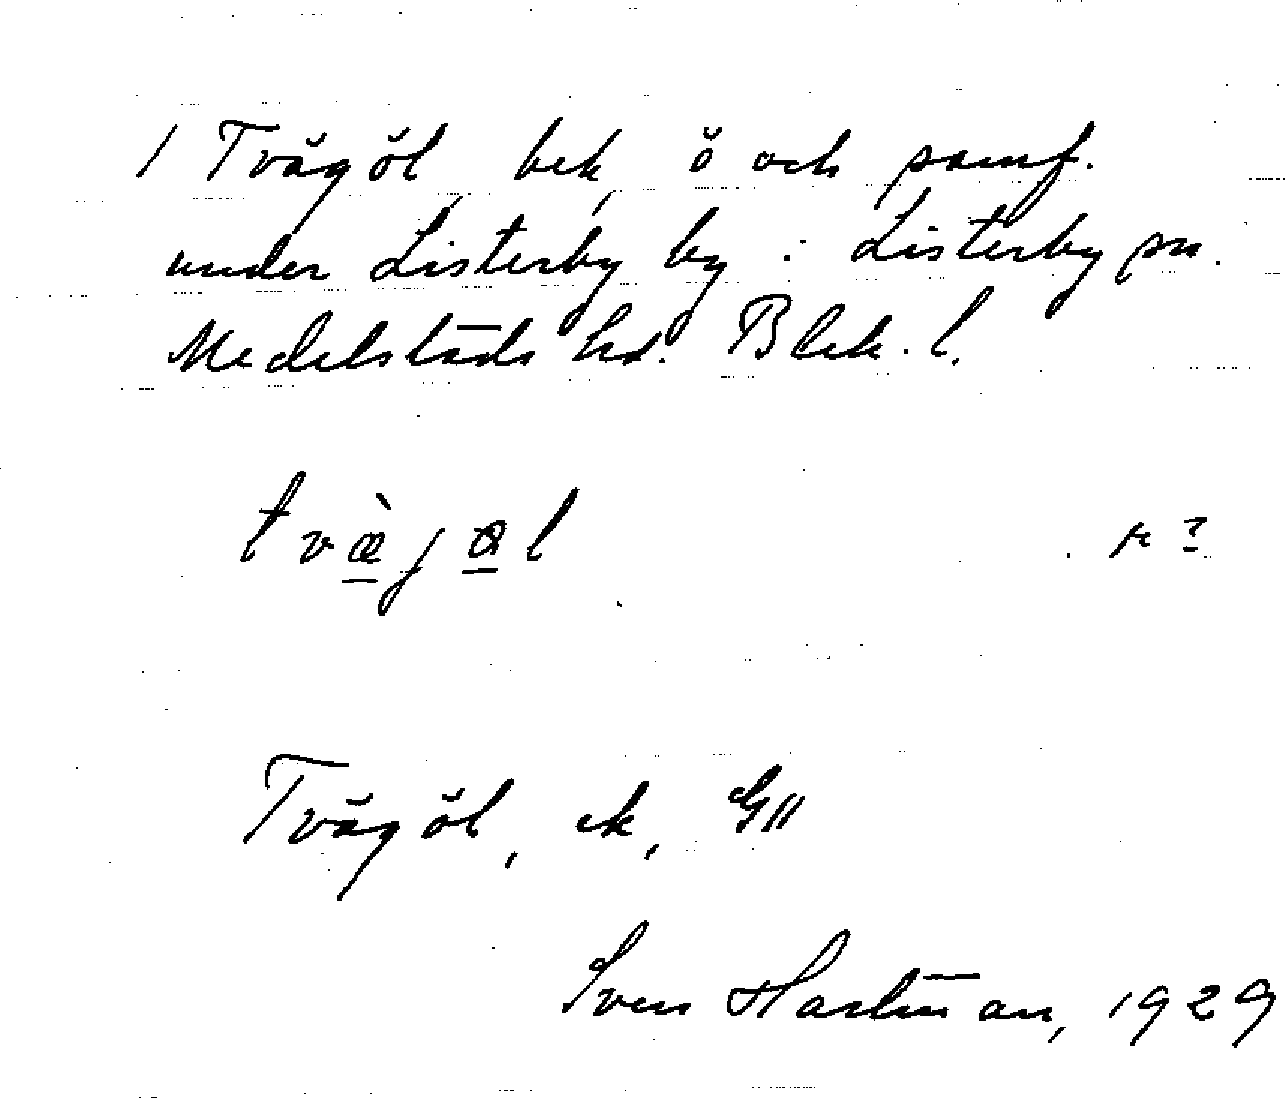 1 Tvägöl, bek, ö och samf.
under Listerby by i Listerby sn.
Medelstads hd. Blek. l.
tvæ̀jøl
Tvägöl, ek, G11
Sven Hartman, 1929